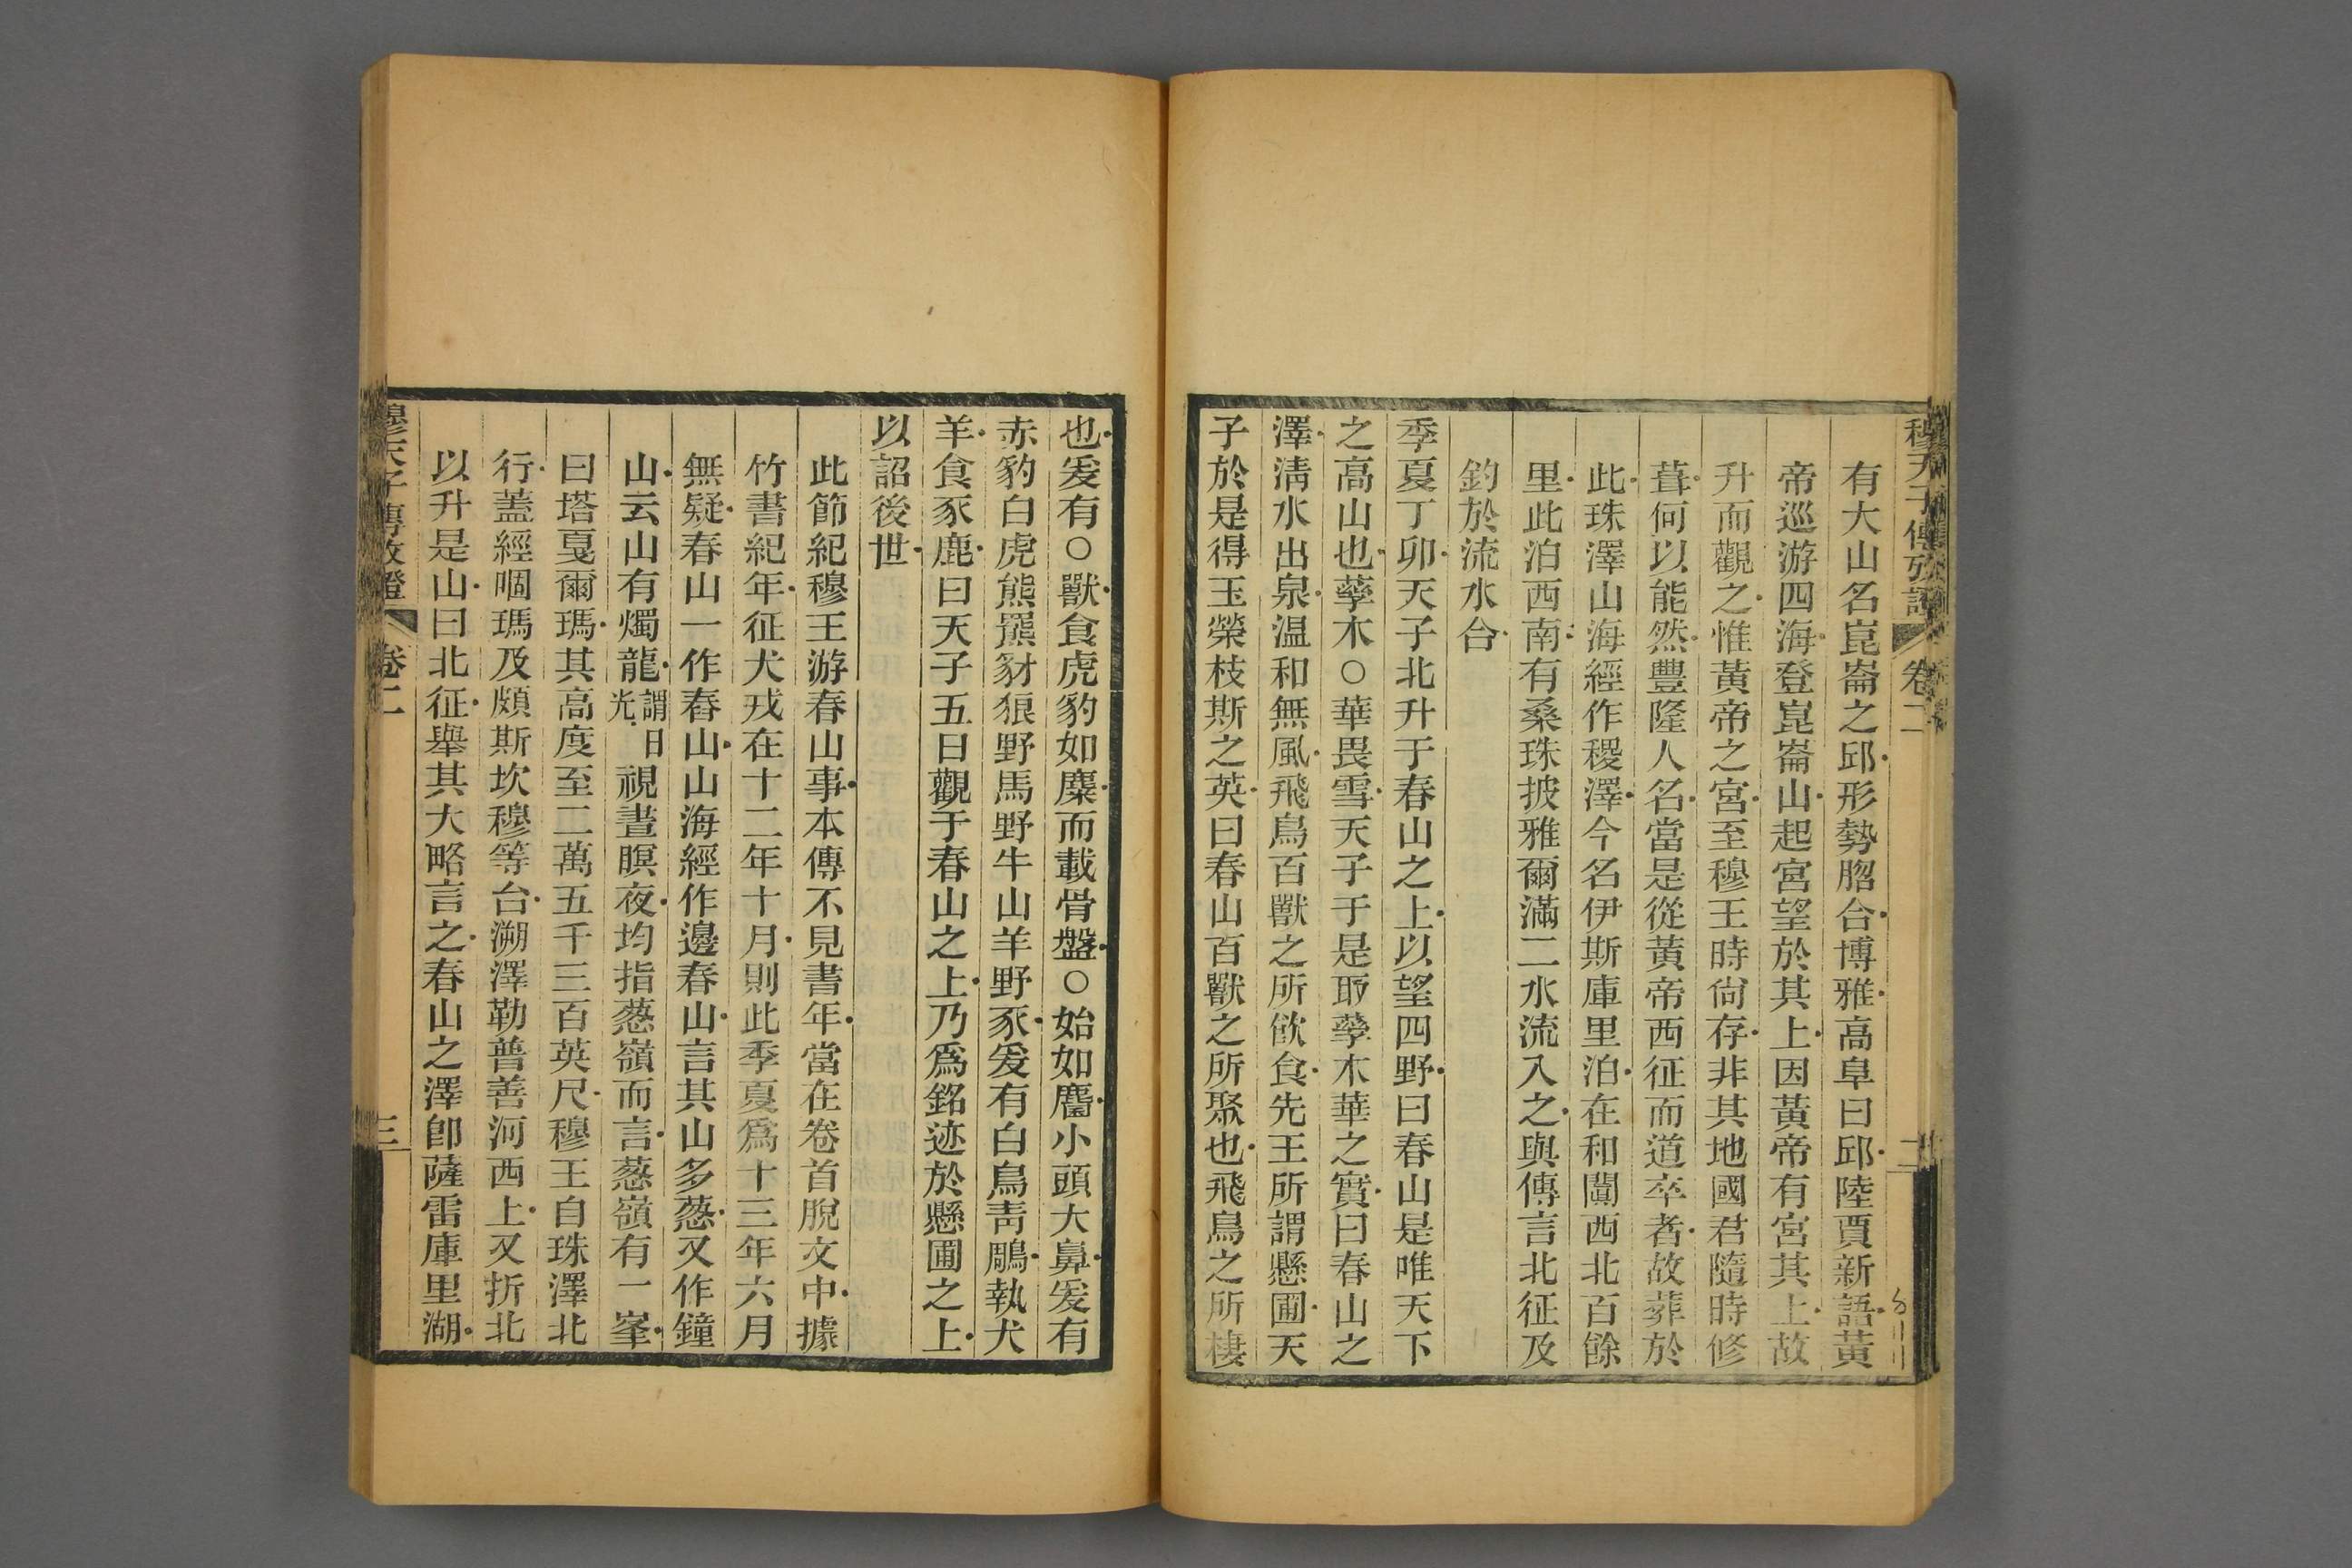 穆天子傳攷證 卷二 二
有大山名崑崙之邱形勢脗合博雅高阜曰邱陸賈新語黃
帝巡游四海登崑崙山起宮望於其上因黃帝有宮其上故
升而觀之惟黃帝之宮至穆王時尙存非其地國君隨時修
葺何以能然豐隆人名當是從黃帝西征而道卒者故葬於
此珠澤山海經作稷澤今名伊斯庫里泊在和闐西北百餘
里此泊西南有桑珠披雅爾滿二水流入之與傳言北征及
釣於流水合
季夏丁卯天子北升于舂山之上以望四野曰舂山是唯天下
之高山也孳木○華畏雪天子于是取孳木華之實曰舂山之
澤淸水出泉溫和無風飛鳥百獸之所飲食先王所謂懸圃天
子於是得玉榮枝斯之英曰舂山百獸之所聚也飛鳥之所棲
也爰有○獸食虎豹如麋而載骨盤○始如麕小頭大鼻爰有
赤豹白虎熊羆豺狼野馬野牛山羊野豕爰有白鳥靑鵰執犬
羊食豕鹿曰天子五日觀于舂山之上乃爲銘迹於懸圃之上
以詔後世
此節紀穆王游舂山事本傳不見書年當在卷首脫文中據
竹書紀年征犬戎在十二年十月則此季夏爲十三年六月
無疑春山一作舂山山海經作邊春山言其山多葱又作鐘
山云山有燭龍謂日光視晝瞑夜均指葱嶺而言葱嶺有一峯
曰塔戛爾瑪其高度至二萬五千三百英尺穆王自珠澤北
行蓋經啯瑪及頗斯坎穆等台溯澤勒普善河西上又折北
以升是山曰北征舉其大略言之舂山之澤卽薩雷庫里湖
穆天子傳攷證 卷二 三